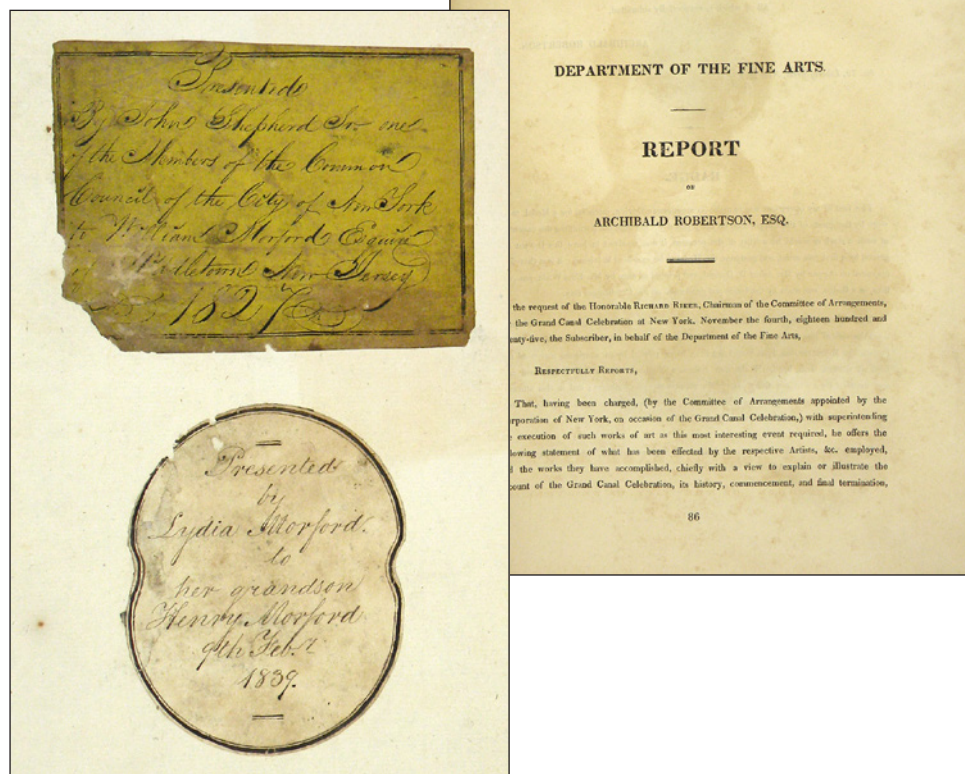 Presented
By John Shepherd Sr. one
of the Members of the Common
Council of the City of New York
to William Morford Esquire
of Middletown New Jersey
1827
Presented
by
Lydia Morford.
to
her grandson
Henry Morford
9th Feb.r
1839.
DEPARTMENT OF THE FINE ARTS.
REPORT
OF
ARCHIBALD ROBERTSON, ESQ.
the request of the Honorable RICHARD RIKER, Chairman of the Committee of Arrangements,
the Grand Canal Celebration at New York, November the fourth, eighteen hundred and
enty-five, the Subscriber, in behalf of the Department of the Fine Arts,
RESPECTFULLY REPORTS,
That, having been charged, (by the Committee of Arrangements appointed by the
rporation of New York, on occasion of the Grand Canal Celebration,) with superintending
execution of such works of art as this most interesting event required, he offers the
lowing statement of what has been effected by the respective Artists, &c. employed,
d the works they have accomplished, chiefly with a view to explain or illustrate the
count of the Grand Canal Celebration, its history, commencement, and final termination,
86